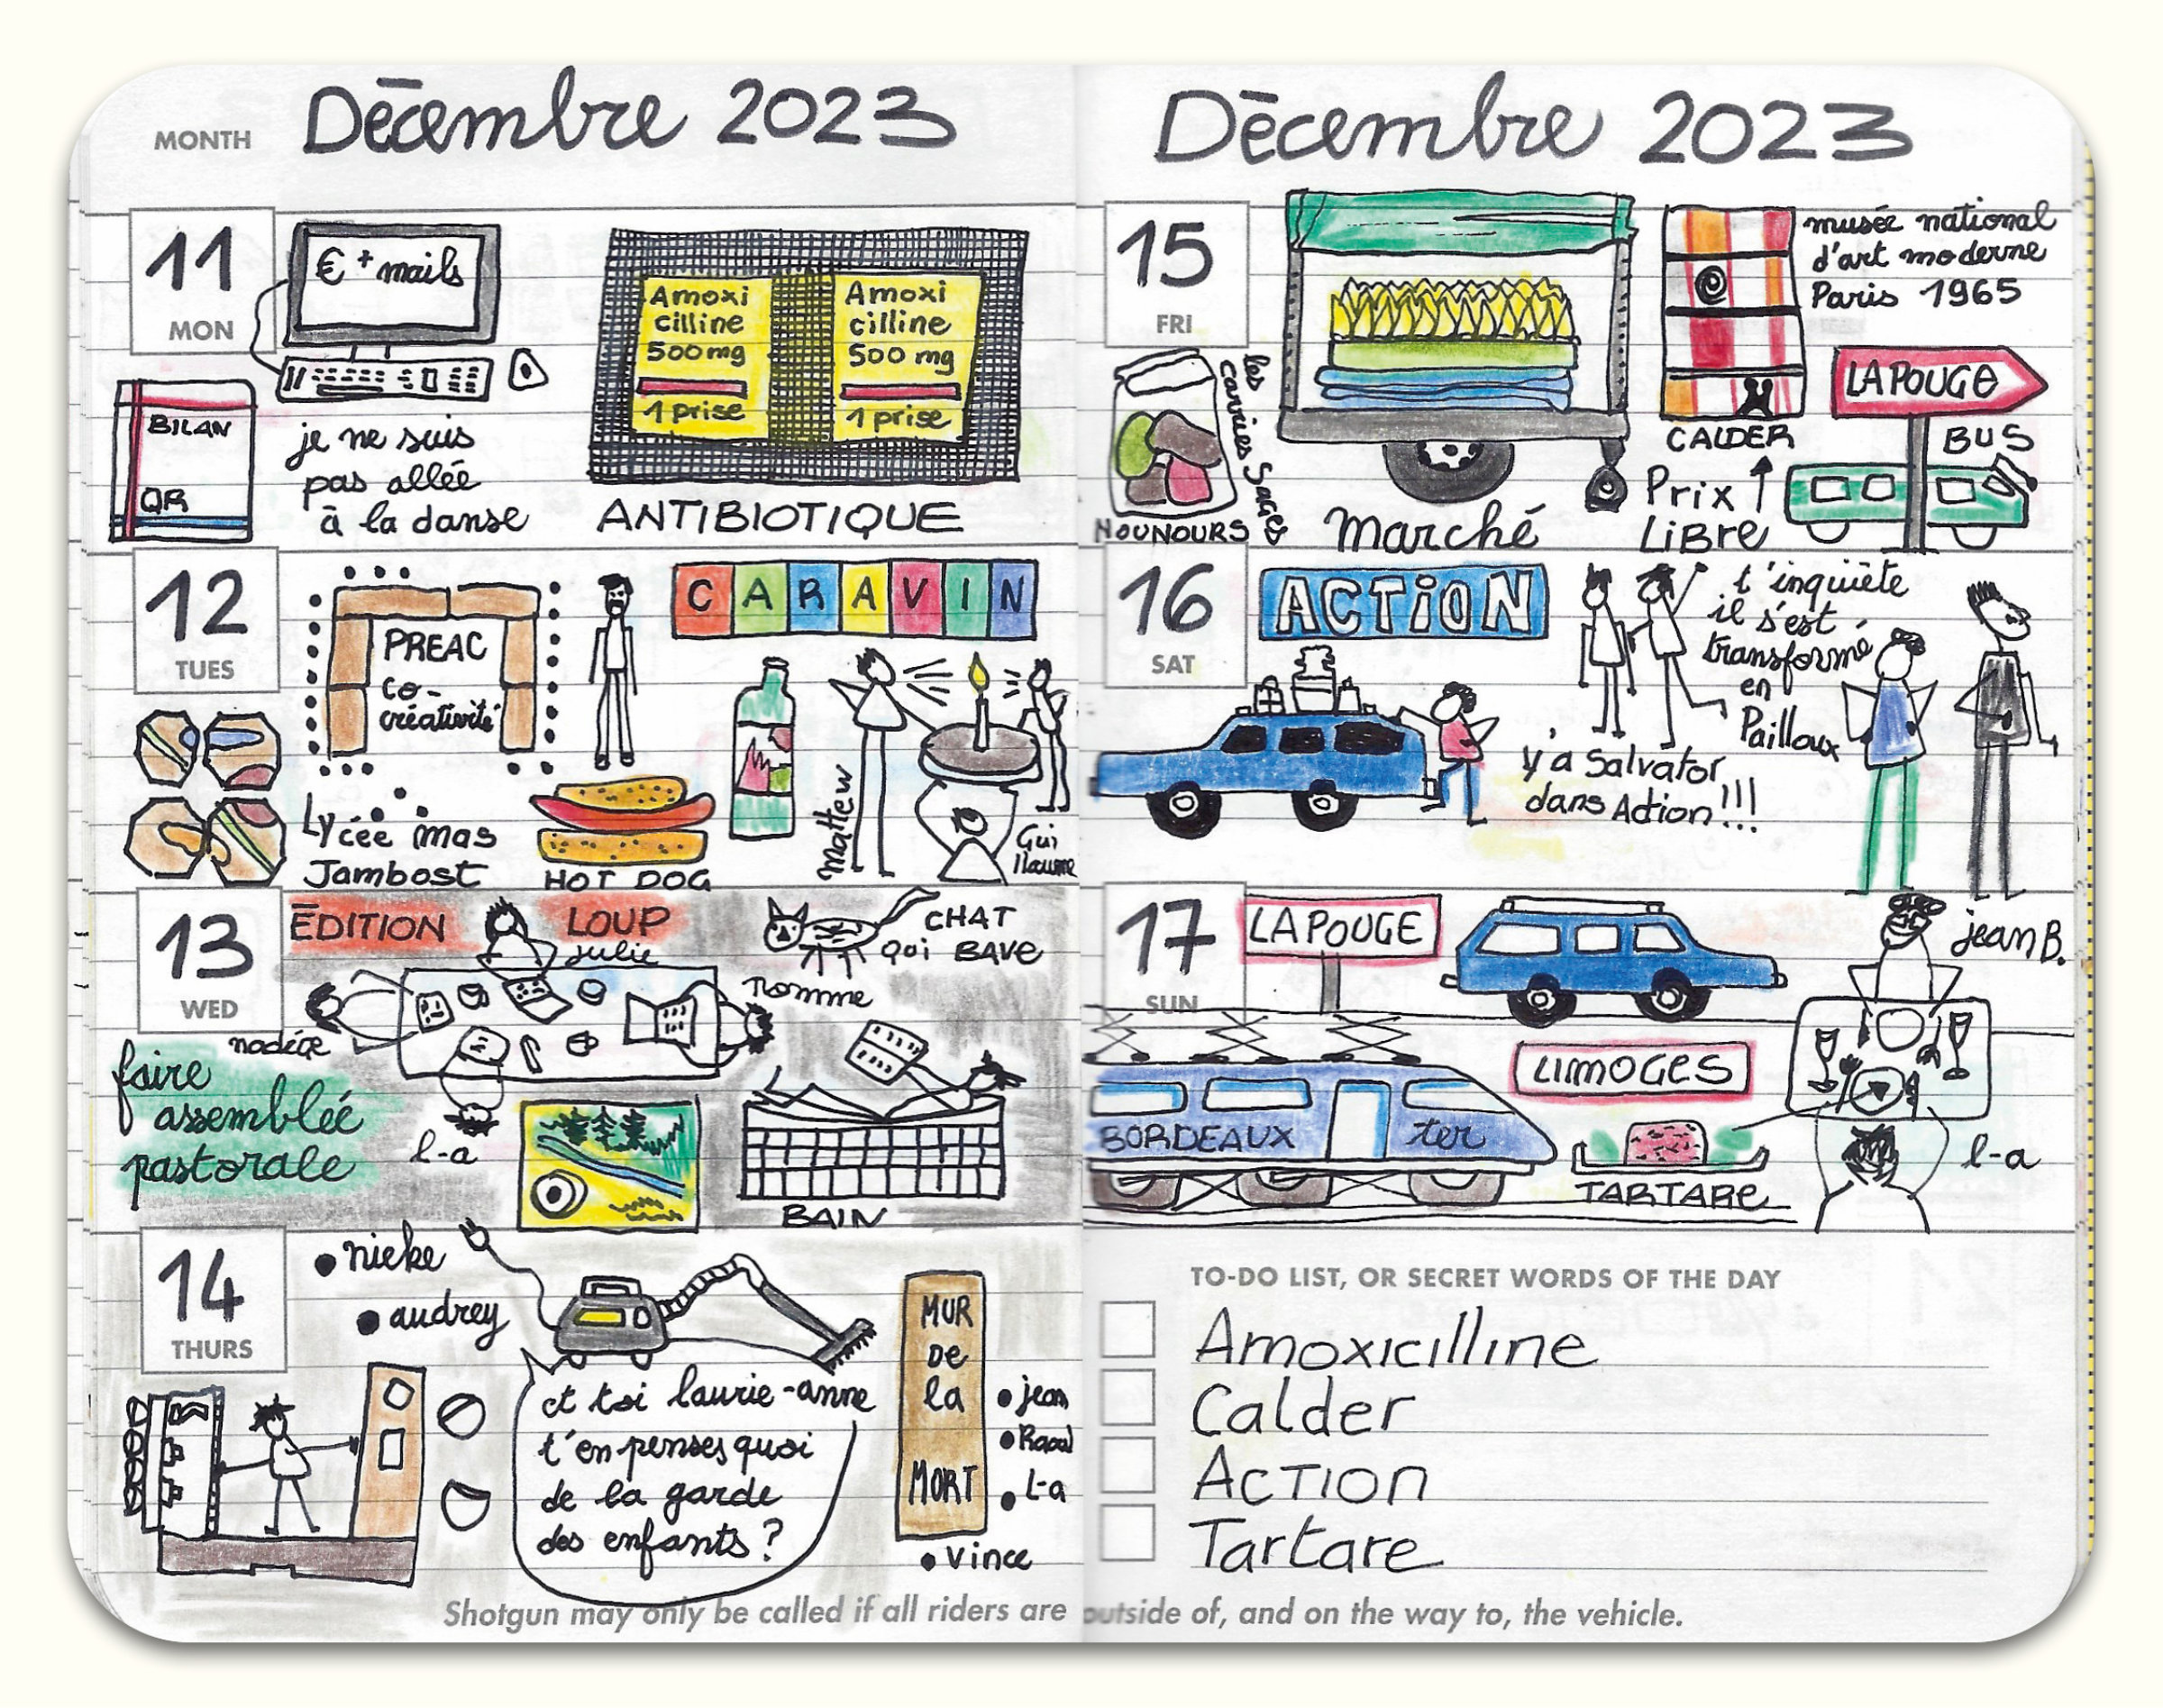 MONTH
Décembre 2023
11
MON
€ + mails
BILAN
QR
je ne suis
pas allée
à la danse
Amoxi
cilline
500mg
1 prise
Amoxi
cilline
500 mg
1 prise
ANTIBIOTIQUE
12
TUES
PREAC
co-
créativité
Lycée mas
Jambost
HOT DOG
CARAVIN
Mattew
Gui
llaume
13
WED
ÉDITION
LOUP
julie
CHAT
qui BAVE
nomme
nadége
faire
assemblée
pastorale
l-a
BAIN
14
THURS
• nieke
• audrey
et toi laurie-anne
t'en penses quoi
de la garde
des enfants ?
MUR
De
la
MORT
• jean
• Raoul
• L-a
• vince
Shotgun may only be called if all riders are outside of, and on the way to, the vehicle.
Décembre 2023
15
FRI
NOUNOURS
marché
musée national
d'art moderne
Paris 1965
CALDER
Prix
LiBre
LA POUGE
BUS
16
SAT
ACTiON
t'inquiète
il s'est
transformé
en
Pailloux
y'a Salvator
dans Action!!!
17
SUN
LA POUGE
jean B.
LIMOGES
BORDEAUX
ter
TARTARE
l-a
TO-DO LIST, OR SECRET WORDS OF THE DAY
Amoxicilline
Calder
ACTION
Tartare